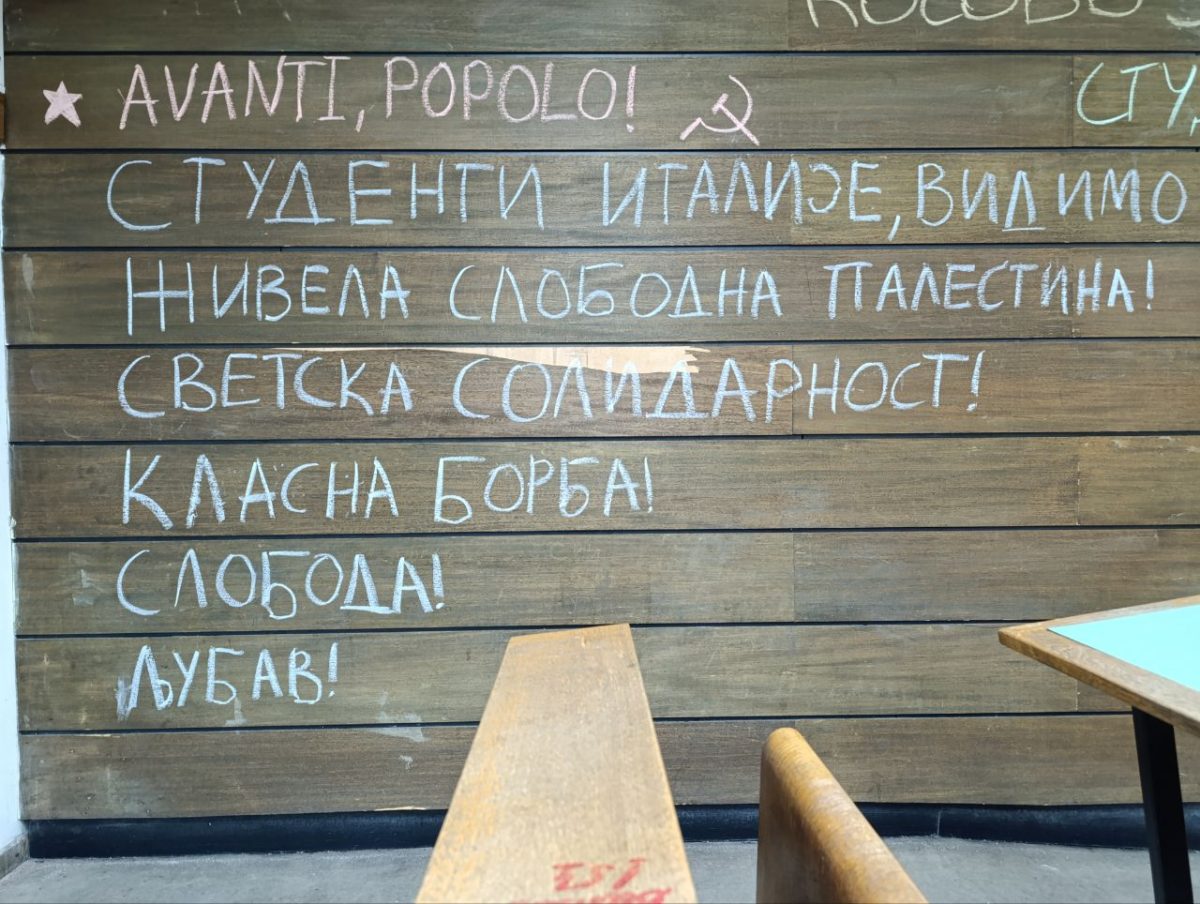 AVANTI, POPOLO!
СТУДЕНТИ ИТАЛИЈЕ, ВИДИМО
ЖИВЕЛА СЛОБОДНА ПАЛЕСТИНА!
СВЕТСКА СОЛИДАРНОСТ!
КЛАСНА БОРБА!
СЛОБОДА!
ЉУБАВ!